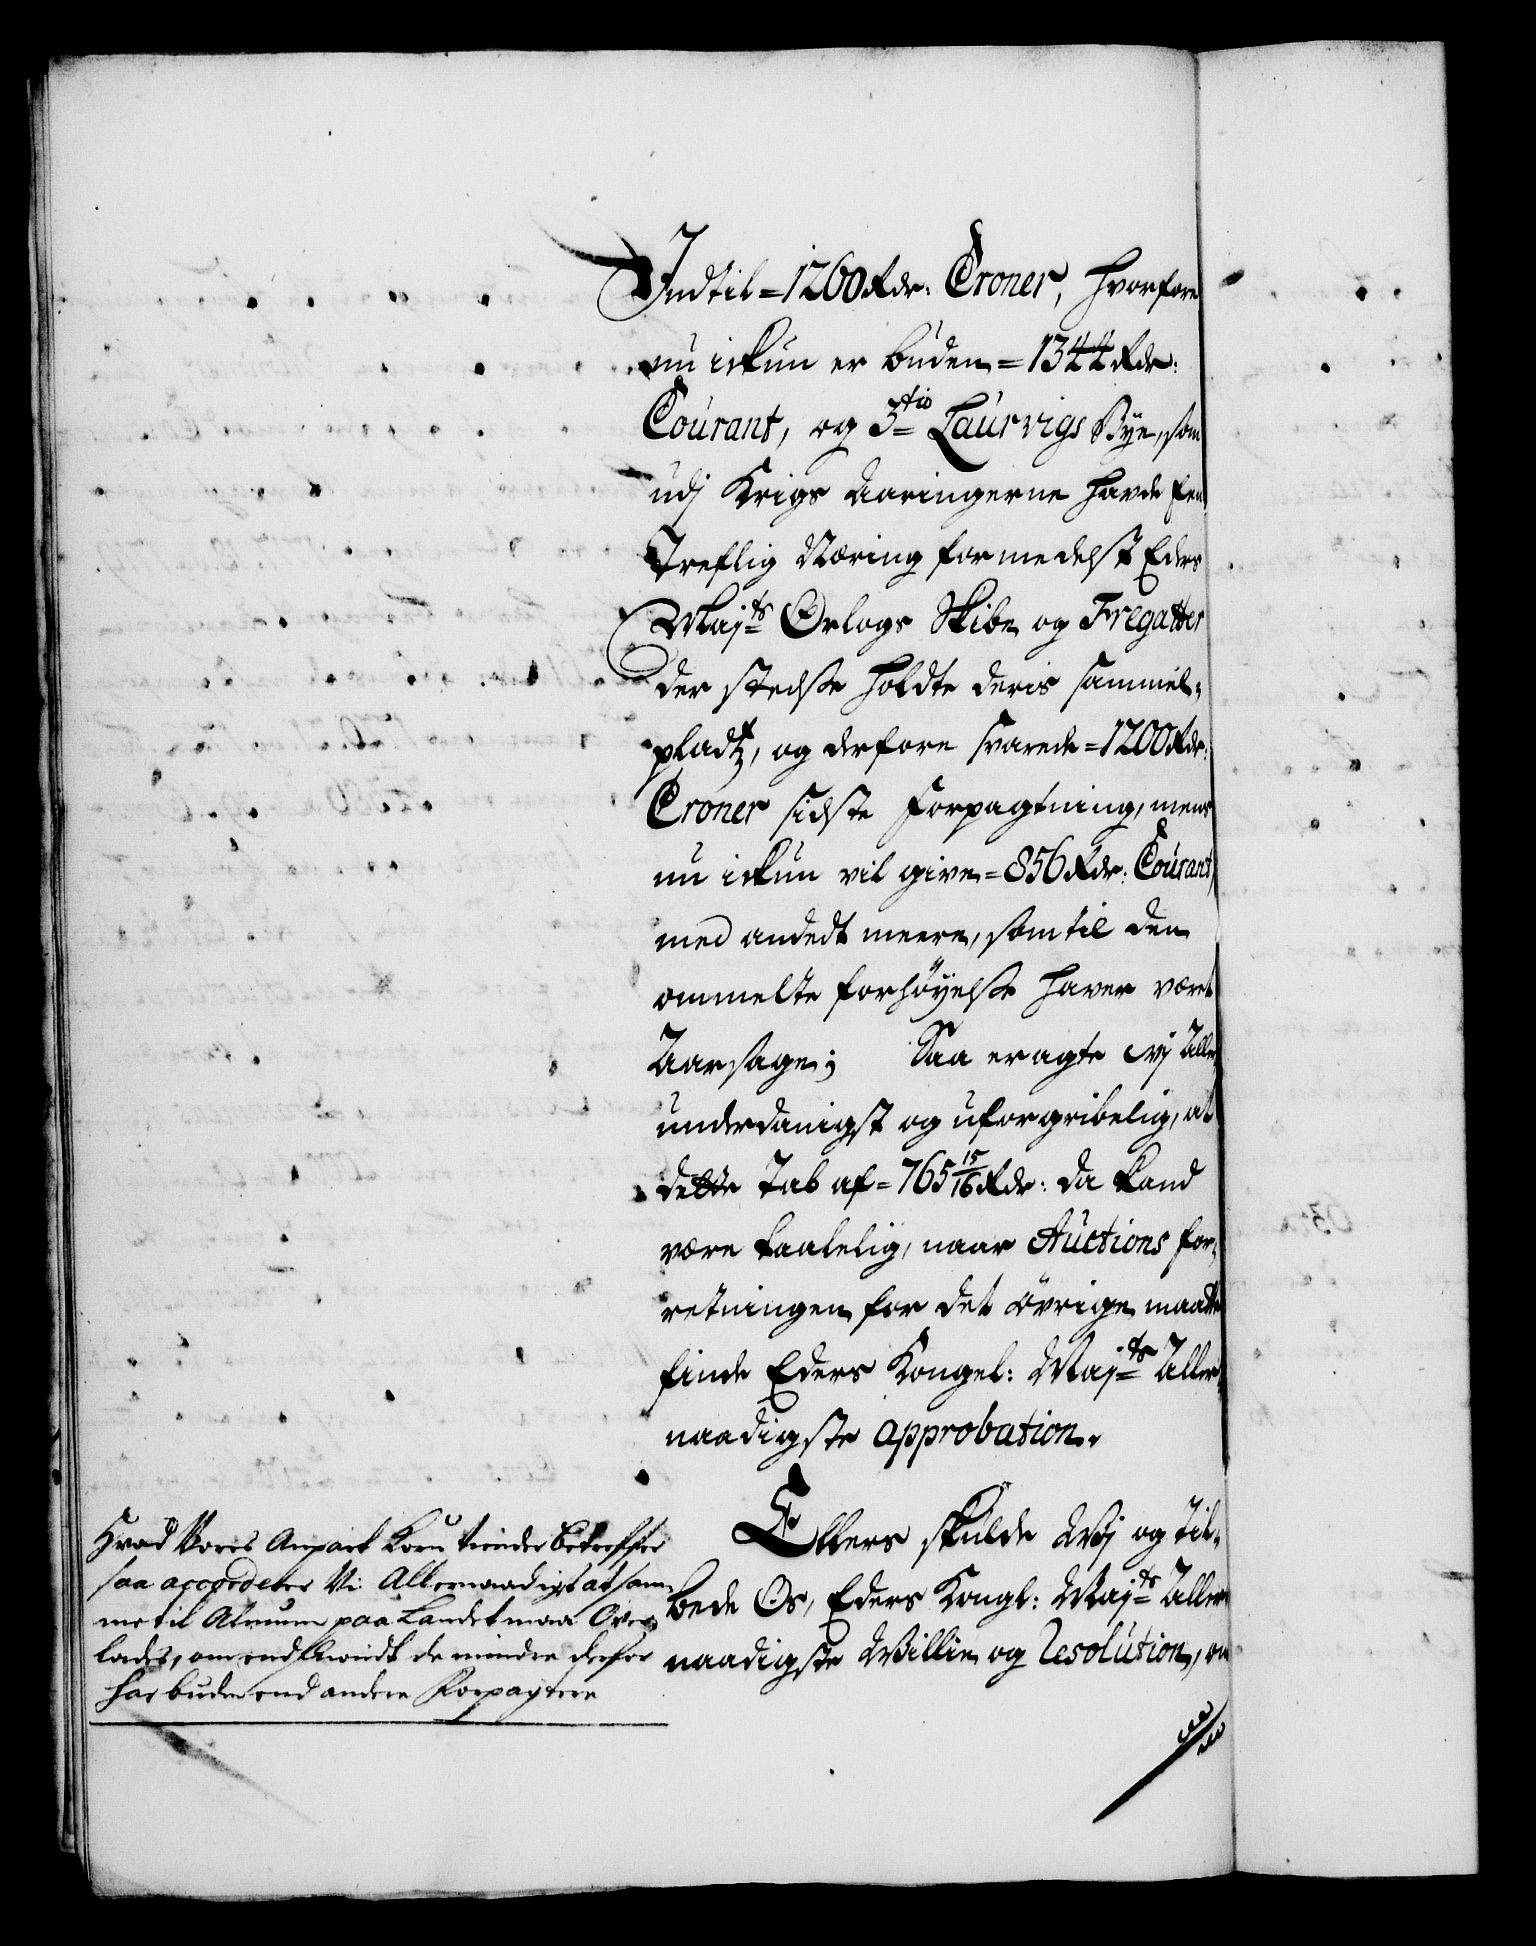 Indtil = 1260 Rdr: Croner, hvorfore
nu ickun er buden = 1344 Rdr:
Courant, og 3tio Laurvigs Bye, som
udj Krigs Aaringerne havde sin
Treflig Næring formedelst Eders
Majts Orlogs Skibe og Fregatter
der stedse holdte deris sammel-
pladtz, og derfore svarede = 1200 Rdr:
Croner sidste Forpagtning, mens
nu ickun vil give = 856 Rdr: Courant,
med andedt meere, som til den
ommelte forhöyelse haver været
Aarsage; Saa eragte vj Aller
underdanigst og uforgribelig, at
dette Tab af = 765 15/16 Rdr: da kand
være taalelig, naar Auctions for-
retningen for det övrige maatte
finde Eders Kongel: Majts Aller-
naadigste approbation.
Ellers skulde Wj og til-
bede Os, Eders Kongl: Majts Aller
naadigste Willie og Resolution, om
Hvad Vores Anpart Korn tiender betreffer
saa accorderer Vi Allernaadigst at sam-
me til Almuen paa Landet maa Over-
lades, om endskiøndt de mindre derfor
har buden end andre Forpagtere